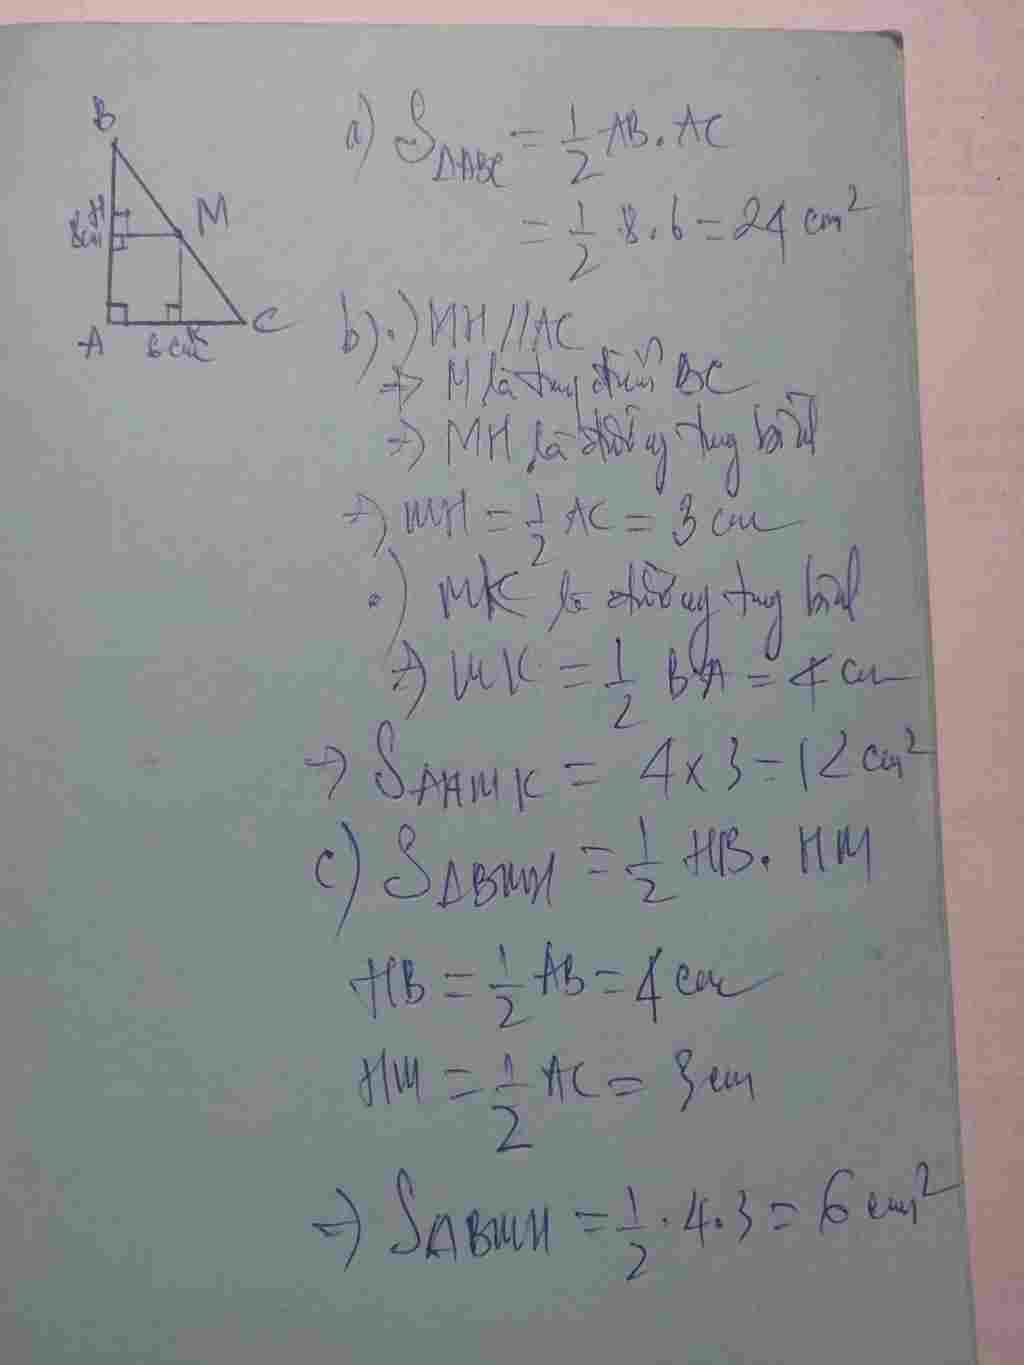 B
H
8cm
M
A
6cm
K
C
a) S△ABC = 1/2 AB . AC
= 1/2 . 8 . 6 = 24 cm²
b) .) MH // AC
→ M là trung điểm BC
→ MH là đường trung bình
→ MH = 1/2 AC = 3 cm
.) MK là đường trung bình
→ MK = 1/2 BA = 4 cm
→ SAHMK = 4 x 3 = 12 cm²
c) S△BMH = 1/2 HB . HM
HB = 1/2 AB = 4 cm
HM = 1/2 AC = 3 cm
→ S△BMH = 1/2 . 4 . 3 = 6 cm²